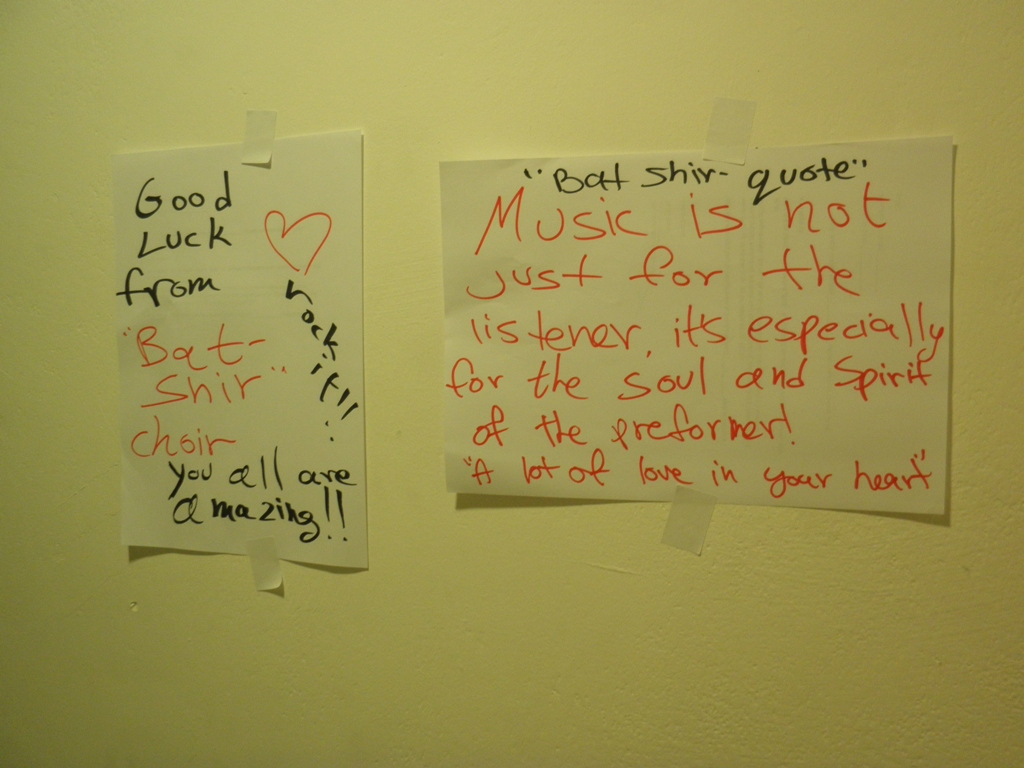 Good
Luck
from
"Bat-
Shir"
choir
you all are
amazing!!
rock it!!!
"Bat shir- quote"
Music is not
just for the
listener, it's especially
for the soul and Spirit
of the preformer!
"A lot of love in your heart"